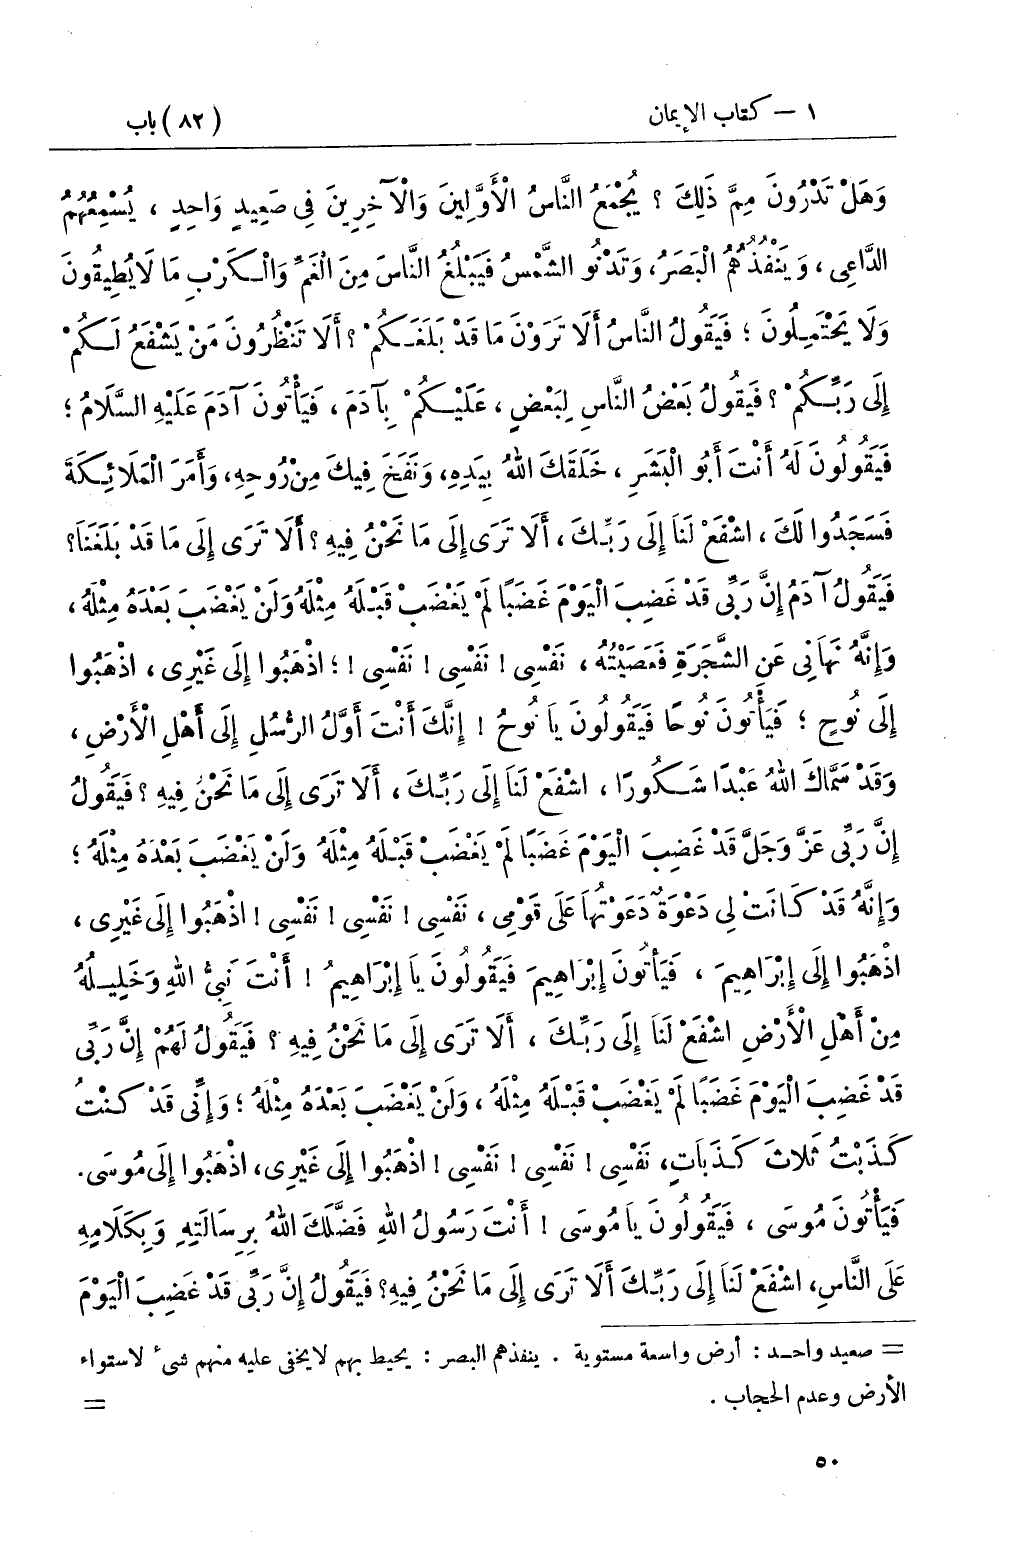 ١ – كتاب الإيمان
(٨٢) باب
وَهَلْ تَدْرُونَ مِمَّ ذَلِكَ ؟ يُجْمَعُ النَّاسُ الْأَوَّلِينَ وَالْآخِرِينَ فِي صَعِيدٍ وَاحِدٍ ، يُسْمِعُهُمُ
الدَّاعِي ، وَيَنْفُذُهُمُ الْبَصَرُ، وَتَدْنُو الشَّمْسُ فَيَبْلُغُ النَّاسَ مِنَ الْغَمِّ وَالْكَرْبِ مَا لَا يُطِيقُونَ
وَلَا يَحْتَمِلُونَ ؛ فَيَقُولُ النَّاسُ أَلَا تَرَوْنَ مَا قَدْ بَلَغَكُمْ ؟ أَلَا تَنْظُرُونَ مَنْ يَشْفَعُ لَكُمْ
إِلَى رَبِّكُمْ ؟ فَيَقُولُ بَعْضُ النَّاسِ لِبَعْضٍ ، عَلَيْكُمْ بِآدَمَ ، فَيَأْتُونَ آدَمَ عَلَيْهِ السَّلَامُ ؛
فَيَقُولُونَ لَهُ أَنْتَ أَبُو الْبَشَرِ ، خَلَقَكَ اللهُ بِيَدِهِ، وَنَفَخَ فِيكَ مِنْ رُوحِهِ، وَأَمَرَ الْمَلَائِكَةَ
فَسَجَدُوا لَكَ ، اشْفَعْ لَنَا إِلَى رَبِّكَ ، أَلَا تَرَى إِلَى مَا نَحْنُ فِيهِ ؟ أَلَا تَرَى إِلَى مَا قَدْ بَلَغَنَا؟
فَيَقُولُ آدَمُ إِنَّ رَبِّي قَدْ غَضِبَ الْيَوْمَ غَضَبًا لَمْ يَغْضَبْ قَبْلَهُ مِثْلَهُ وَلَنْ يَغْضَبَ بَعْدَهُ مِثْلَهُ ،
وَإِنَّهُ نَهَانِي عَنِ الشَّجَرَةِ فَعَصَيْتُهُ ، نَفْسِي ! نَفْسِي ! نَفْسِي ! ؛ اذْهَبُوا إِلَى غَيْرِي ، اذْهَبُوا
إِلَى نُوحٍ ؛ فَيَأْتُونَ نُوحًا فَيَقُولُونَ يَا نُوحُ ! إِنَّكَ أَنْتَ أَوَّلُ الرُّسُلِ إِلَى أَهْلِ الْأَرْضِ ،
وَقَدْ سَمَّاكَ اللهُ عَبْدًا شَكُورًا ، اشْفَعْ لَنَا إِلَى رَبِّكَ ، أَلَا تَرَى إِلَى مَا نَحْنُ فِيهِ ؟ فَيَقُولُ
إِنَّ رَبِّي عَزَّ وَجَلَّ قَدْ غَضِبَ الْيَوْمَ غَضَبًا لَمْ يَغْضَبْ قَبْلَهُ مِثْلَهُ وَلَنْ يَغْضَبَ بَعْدَهُ مِثْلَهُ ؛
وَإِنَّهُ قَدْ كَانَتْ لِي دَعْوَةٌ دَعَوْتُهَا عَلَى قَوْمِي ، نَفْسِي ! نَفْسِي ! نَفْسِي ! اذْهَبُوا إِلَى غَيْرِي ،
اذْهَبُوا إِلَى إِبْرَاهِيمَ ، فَيَأْتُونَ إِبْرَاهِيمَ فَيَقُولُونَ يَا إِبْرَاهِيمُ ! أَنْتَ نَبِيُّ اللهِ وَخَلِيلُهُ
مِنْ أَهْلِ الْأَرْضِ اشْفَعْ لَنَا إِلَى رَبِّكَ ، أَلَا تَرَى إِلَى مَا نَحْنُ فِيهِ ؟ فَيَقُولُ لَهُمْ إِنَّ رَبِّي
قَدْ غَضِبَ الْيَوْمَ غَضَبًا لَمْ يَغْضَبْ قَبْلَهُ مِثْلَهُ ، وَلَنْ يَغْضَبَ بَعْدَهُ مِثْلَهُ ؛ وَإِنِّي قَدْ كُنْتُ
كَذَبْتُ ثَلَاثَ كَذَبَاتٍ، نَفْسِي ! نَفْسِي ! نَفْسِي ! اذْهَبُوا إِلَى غَيْرِي، اذْهَبُوا إِلَى مُوسَى.
فَيَأْتُونَ مُوسَى ، فَيَقُولُونَ يَا مُوسَى ! أَنْتَ رَسُولُ اللهِ فَضَّلَكَ اللهُ بِرِسَالَتِهِ وَبِكَلَامِهِ
عَلَى النَّاسِ، اشْفَعْ لَنَا إِلَى رَبِّكَ أَلَا تَرَى إِلَى مَا نَحْنُ فِيهِ؟ فَيَقُولُ إِنَّ رَبِّي قَدْ غَضِبَ الْيَوْمَ
= صعيد واحد : أرض واسعة مستوية . ينفذهم البصر : يحيط بهم لا يخفى عليه منهم شىء لاستواء
الأرض وعدم الحجاب .
=
٥٠